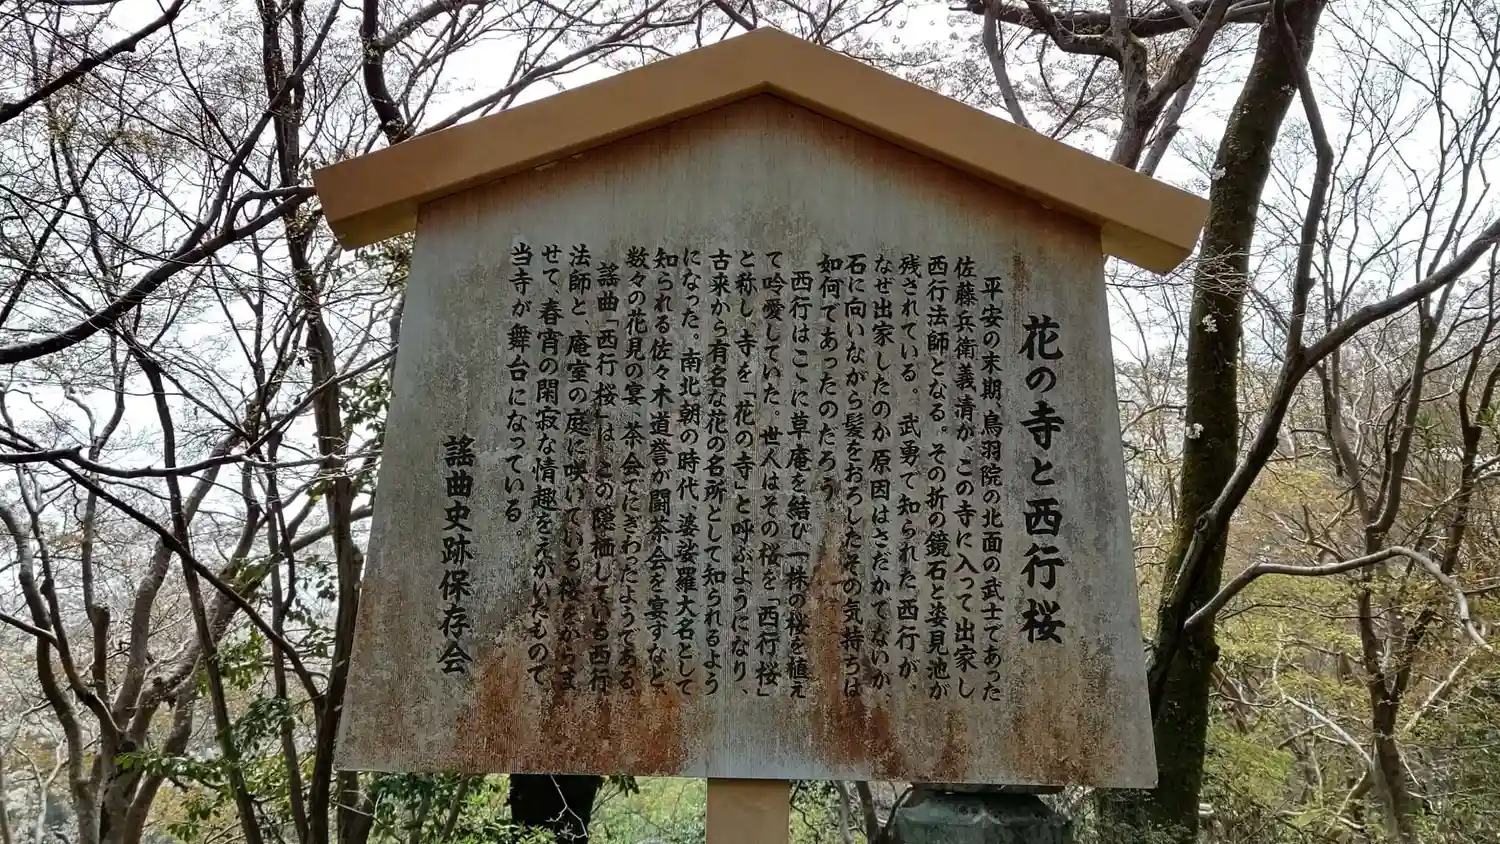 花の寺と西行桜
平安の末期、鳥羽院の北面の武士であった
佐藤兵衛義清が、この寺に入って出家し
西行法師となる。その折の鏡石と姿見池が
残されている。武勇で知られた「西行が、
なぜ出家したのか原因はさだかでないが、
石に向いながら髪をおろしたその気持ちは
如何であったのだろう。
西行はこゝに草庵を結び「一株の桜を植え
て吟愛していた。世人はその桜を「西行桜」
と称し、寺を「花の寺」と呼ぶようになり、
古来から有名な花の名所として知られるよう
になった。南北朝の時代、婆娑羅大名として
知られる佐々木道誉が闘茶会を宴すなど、
数々の花見の宴、茶会でにぎわったようである。
謡曲「西行桜」は、この隠栖している西行
法師と、庵室の庭に咲いている桜をからま
せて、春宵の閑寂な情趣をえがいたもので、
当寺が舞台になっている。
謡曲史跡保存会